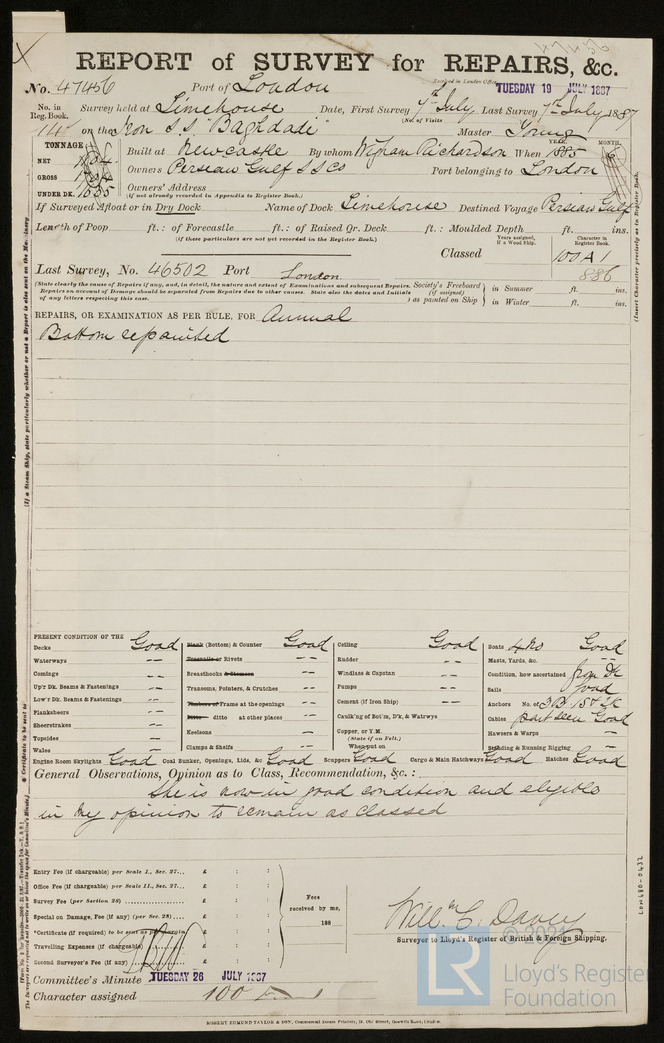 47456
REPORT of SURVEY for REPAIRS, &c.
No. 47456 Port of London
Received in London Office TUESDAY 19 JULY 1887
No. in Reg. Book. Survey held at Limehouse Date, First Survey 7th July Last Survey 7th July 1887
(No. of Visits
on the Iron S.S. "Baghdadi" Master Young
TONNAGE
NET
GROSS
UNDER DK.
Built at Newcastle By whom Wigham Richardson When 1885
YEAR. MONTH.
Owners Persian Gulf S S Co Port belonging to London
Owners' Address
(if not already recorded in Appendix to Register Book.)
If Surveyed Afloat or in Dry Dock Name of Dock Limehouse Destined Voyage Persian Gulf
Length of Poop ft.: of Forecastle ft.: of Raised Qr. Deck ft.: Moulded Depth ft. ins.
(If these particulars are not yet recorded in the Register Book.)
Years assigned, if a Wood Ship. Character in Register Book.
Classed 100 A 1
886
Last Survey, No. 46502 Port London
(State clearly the cause of Repairs if any, and, in detail, the nature and extent of Examinations and subsequent Repairs. Repairs on account of Damage should be separated from Repairs due to other causes. State also the dates and Initials of any letters respecting this case.
Society's Freeboard (if assigned) as painted on Ship in Summer ft. ins.
in Winter ft. ins.
REPAIRS, OR EXAMINATION AS PER RULE, FOR Annual
Bottom repainted
PRESENT CONDITION OF THE
Decks Good
Waterways --
Comings --
Up'r Dk. Beams & Fastenings --
Low'r Dk. Beams & Fastenings --
Planksheers --
Sheerstrakes --
Topsides --
Wales --
Plank (Bottom) & Counter Good
Treenails or Rivets --
Breasthooks & Stemson --
Transoms, Pointers, & Crutches --
Timbers of Frame at the openings --
Ditto ditto at other places --
Keelsons --
Clamps & Shelfs --
Ceiling Good
Rudder --
Windlass & Capstan --
Pumps --
Cement (if Iron Ship) --
Caulk'ng of Bot'm, D'k, & Watrwys
Copper, or Y.M.
(State if on Felt.)
When put on
Boats 4 No Good
Masts, Yards, &c. --
Condition, how ascertained from Dk
Sails Good
Anchors No. of 3 B. 1 S & 2 K
Cables part seen Good
Hawsers & Warps --
Standing & Running Rigging --
Engine Room Skylights Good Coal Bunker, Openings, Lids, &c Good Scuppers Good Cargo & Main Hatchways Good Hatches Good
General Observations, Opinion as to Class, Recommendation, &c. :
She is now in good condition and eligible
in my opinion to remain as classed
Entry Fee (if chargeable) per Scale I., Sec. 27... £ : :
Office Fee (if chargeable) per Scale II., Sec. 27... £ : :
Survey Fee (per Section 28) £ : :
Special or Damage, Fee (if any) (per Sec. 28) £ : :
*Certificate (if required) to be sent as per margin £ : :
Travelling Expenses (if chargeable) £ : :
Second Surveyor's Fee (if any) £ : :
Fees received by me,
188
Will. m C. Davey
Surveyor to Lloyd's Register of British & Foreign Shipping.
Committee's Minute TUESDAY 26 JULY 1887
Character assigned 100 A 1
ROBERT EDMUND TAYLOR & SON, Commercial Steam Printers,
(Insert Character precisely as in Register Book.
LON680-0432
© 2021
LR
Lloyd's Register
Foundation